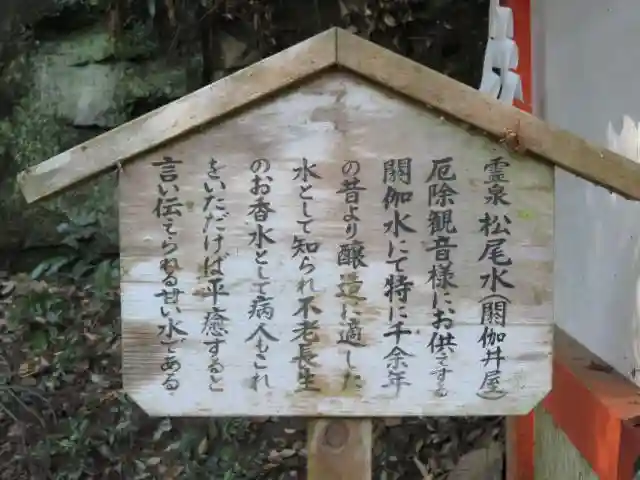 霊泉 松尾水(閼伽井屋)
厄除観音様にお供えする
閼伽水にて特に千余年
の昔より醸造に適した
水として知られ不老長生
のお香水として病人もこれ
をいただけば平癒すると
言い伝えられる甘い水である